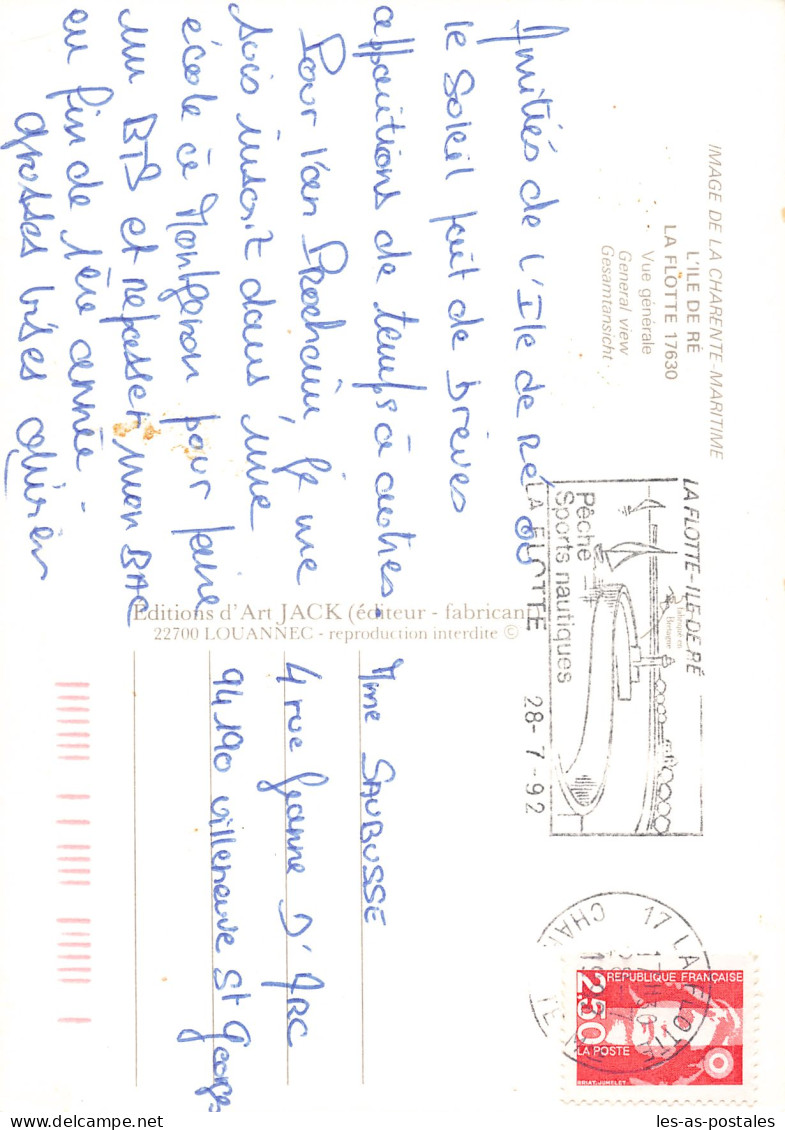 IMAGE DE LA CHARENTE-MARITIME
L'ILE DE RÉ
LA FLOTTE 17630
Vue générale
General view
Gesamtansicht
Amitiés de l'Ile de Ré où
le soleil fait de brèves
apparitions de temps à autres.
Pour l'an prochain, je me
suis inscrit dans une
école à Montgeron pour faire
un BTS et repasser mon BAC
en fin de 1ère année.
grosses bises
Editions d'Art JACK (éditeur - fabricant
22700 LOUANNEC - reproduction interdite ©
Fabriqué en
Bretagne
LA FLOTTE-ILE DE RÉ
Pêche
Sports nautiques
LA FLOTTE
28-7-92
17 LA FLOTTE
RÉPUBLIQUE FRANÇAISE
2,50
LA POSTE
BRIAT-JUMELET
Mme SAUBUSSE
4 rue Jeanne D'ARC
94190 Villeneuve St Georges
les-as-postales.com